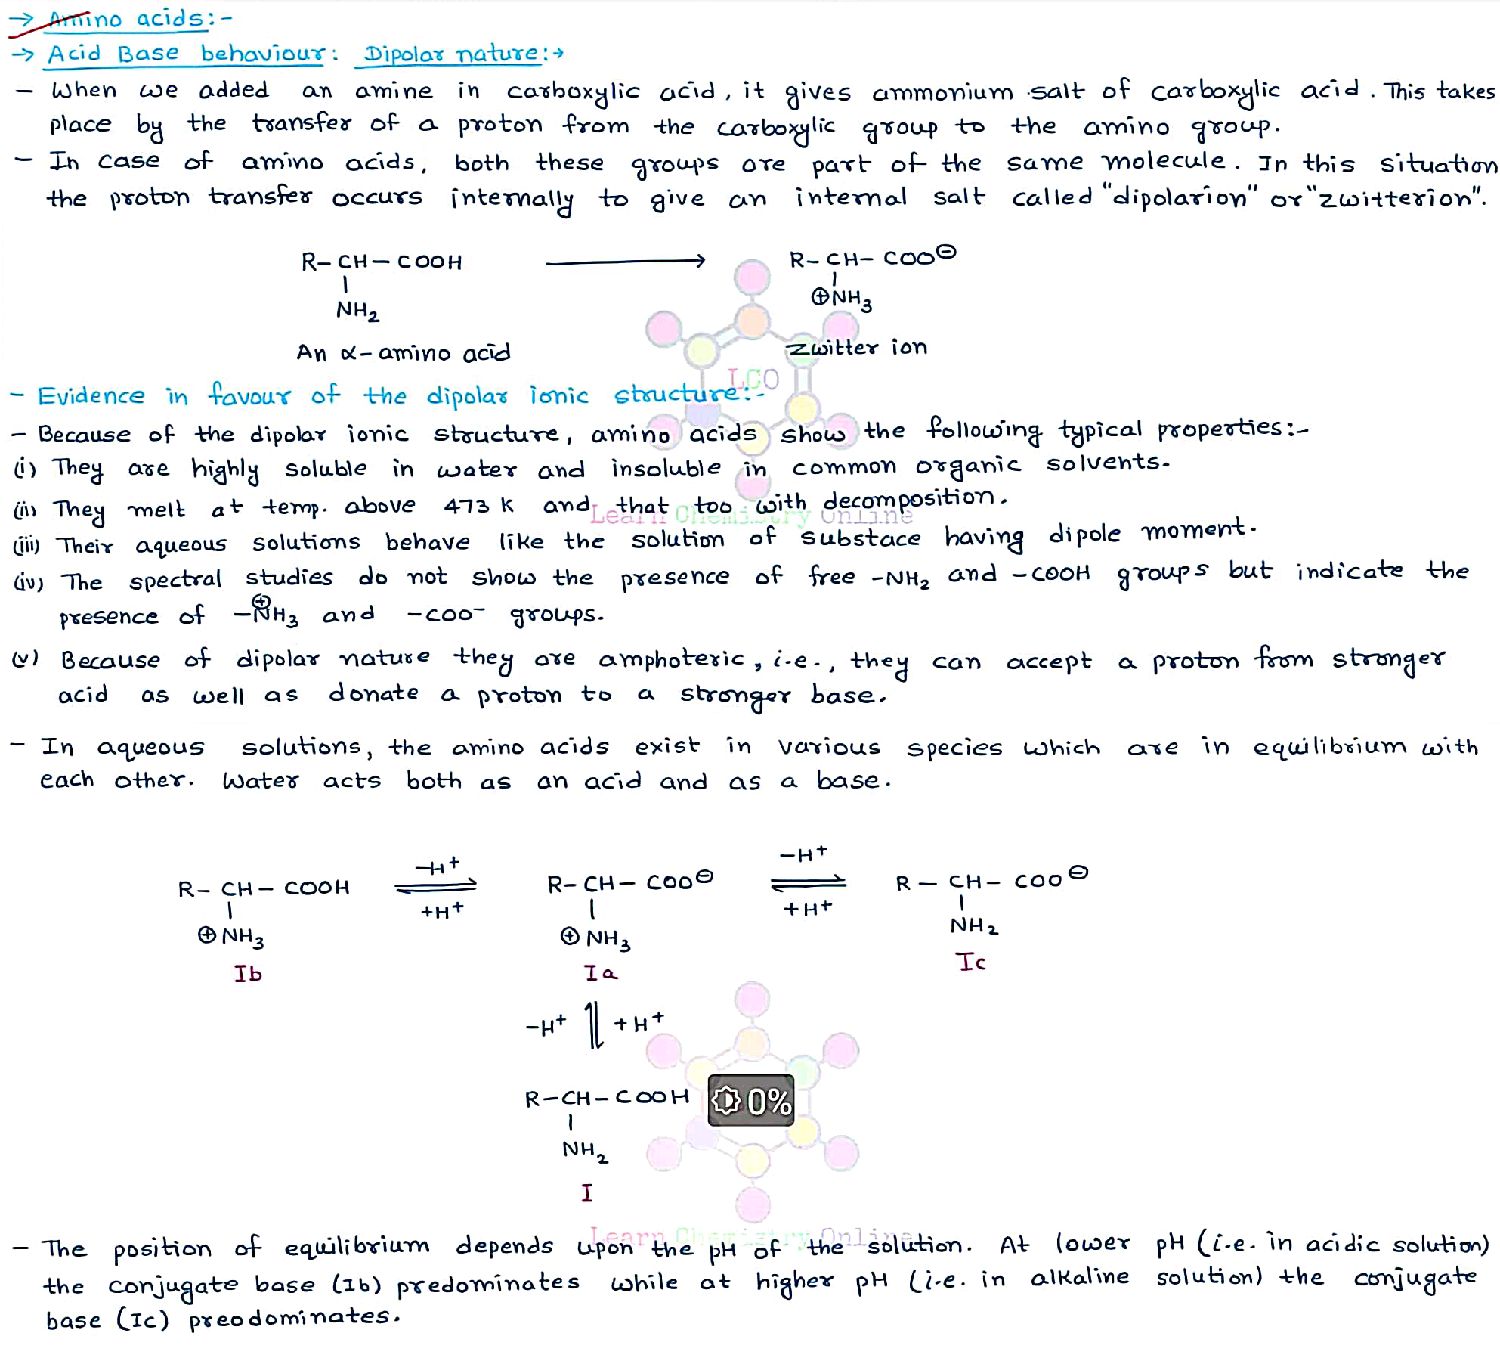 → Amino acids:-
→ Acid Base behaviour: Dipolar nature:→
- When we added an amine in carboxylic acid, it gives ammonium salt of carboxylic acid. This takes
place by the transfer of a proton from the carboxylic group to the amino group.
- In case of amino acids, both these groups are part of the same molecule. In this situation
the proton transfer occurs internally to give an internal salt called "dipolarion" or "zwitterion".
R-CH-COOH → R-CH-COO⊖
NH₂ ⊕NH₃
An α-amino acid Zwitter ion
LCO
- Evidence in favour of the dipolar ionic structure:-
- Because of the dipolar ionic structure, amino acids show the following typical properties:-
(i) They are highly soluble in water and insoluble in common organic solvents.
(ii) They melt at temp. above 473 K and that too with decomposition.
Learn Chemistry Online
(iii) Their aqueous solutions behave like the solution of substace having dipole moment.
(iv) The spectral studies do not show the presence of free -NH₂ and -COOH groups but indicate the
presence of -N⊕H₃ and -COO⁻ groups.
(v) Because of dipolar nature they are amphoteric, i.e., they can accept a proton from stronger
acid as well as donate a proton to a stronger base.
- In aqueous solutions, the amino acids exist in various species which are in equilibrium with
each other. Water acts both as an acid and as a base.
-H⁺ -H⁺
R-CH-COOH ⇌ R-CH-COO⊖ ⇌ R-CH-COO⊖
+H⁺ +H⁺
⊕NH₃ ⊕NH₃ NH₂
Ib Ia Ic
-H⁺ ⥮ +H⁺
R-CH-COOH 0%
NH₂
I
Learn Chemistry Online
- The position of equilibrium depends upon the pH of the solution. At lower pH (i.e. in acidic solution)
the conjugate base (Ib) predominates while at higher pH (i.e. in alkaline solution) the conjugate
base (Ic) preodominates.